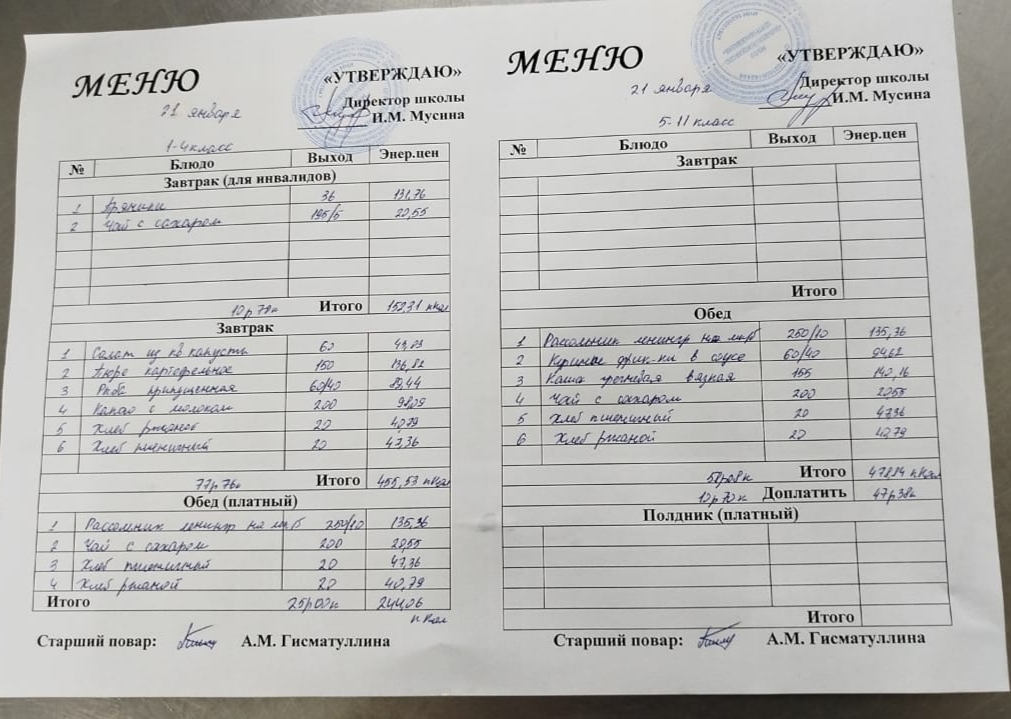 МЕНЮ
«УТВЕРЖДАЮ»
21 января
Директор школы
И.М. Мусина
1-4 класс
№ Блюдо Выход Энер.цен
Завтрак (для инвалидов)
1 Пряники 36 131,76
2 Чай с сахаром 195/5 20,55
Итого 152,31 пКал
Завтрак
1 Салат из кв капусты 60
2 Пюре картофельное 150 136,82
3 Рыба припущенная 60/40 89,44
4 Какао с молоком 200 98,09
5 Хлеб ржаной 20 40,79
6 Хлеб пшеничный 20 47,36
77р76к Итого 455,53 пКал
Обед (платный)
1 Рассольник ленингр на м/б 250/10 135,36
2 Чай с сахаром 200 20,55
3 Хлеб пшеничный 20 47,36
4 Хлеб ржаной 20 40,79
Итого 25р00к 244,06
пКал
Старший повар: А.М. Гисматуллина
МЕНЮ
«УТВЕРЖДАЮ»
21 января
Директор школы
И.М. Мусина
5-11 класс
№ Блюдо Выход Энер.цен
Завтрак
Итого
Обед
1 Рассольник ленингр на м/б 250/10 135,36
2 Куриные фрик-ки в соусе 60/40 94,62
3 Каша гречневая вязкая 155 140,16
4 Чай с сахаром 200 20,55
5 Хлеб пшеничный 20 47,36
6 Хлеб ржаной 20 40,79
Итого 478,84 пКал
Доплатить 47р38к
Полдник (платный)
Итого
Старший повар: А.М. Гисматуллина